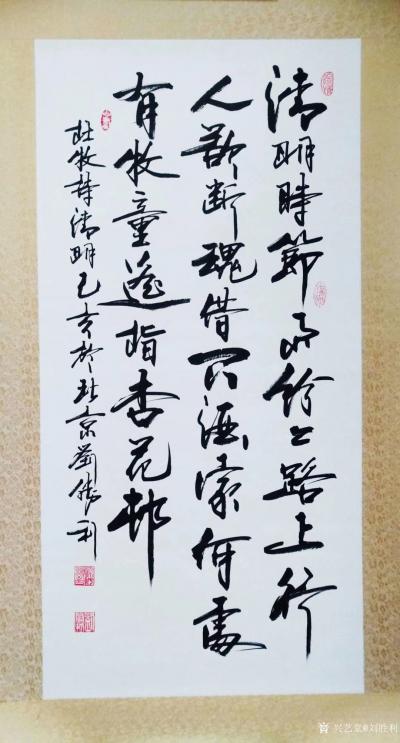 清明時節雨紛々路上行
人欲断魂借問酒家何處
有牧童遙指杏花邨
杜牧詩清明己亥於北京劉勝利
兴艺堂@刘胜利